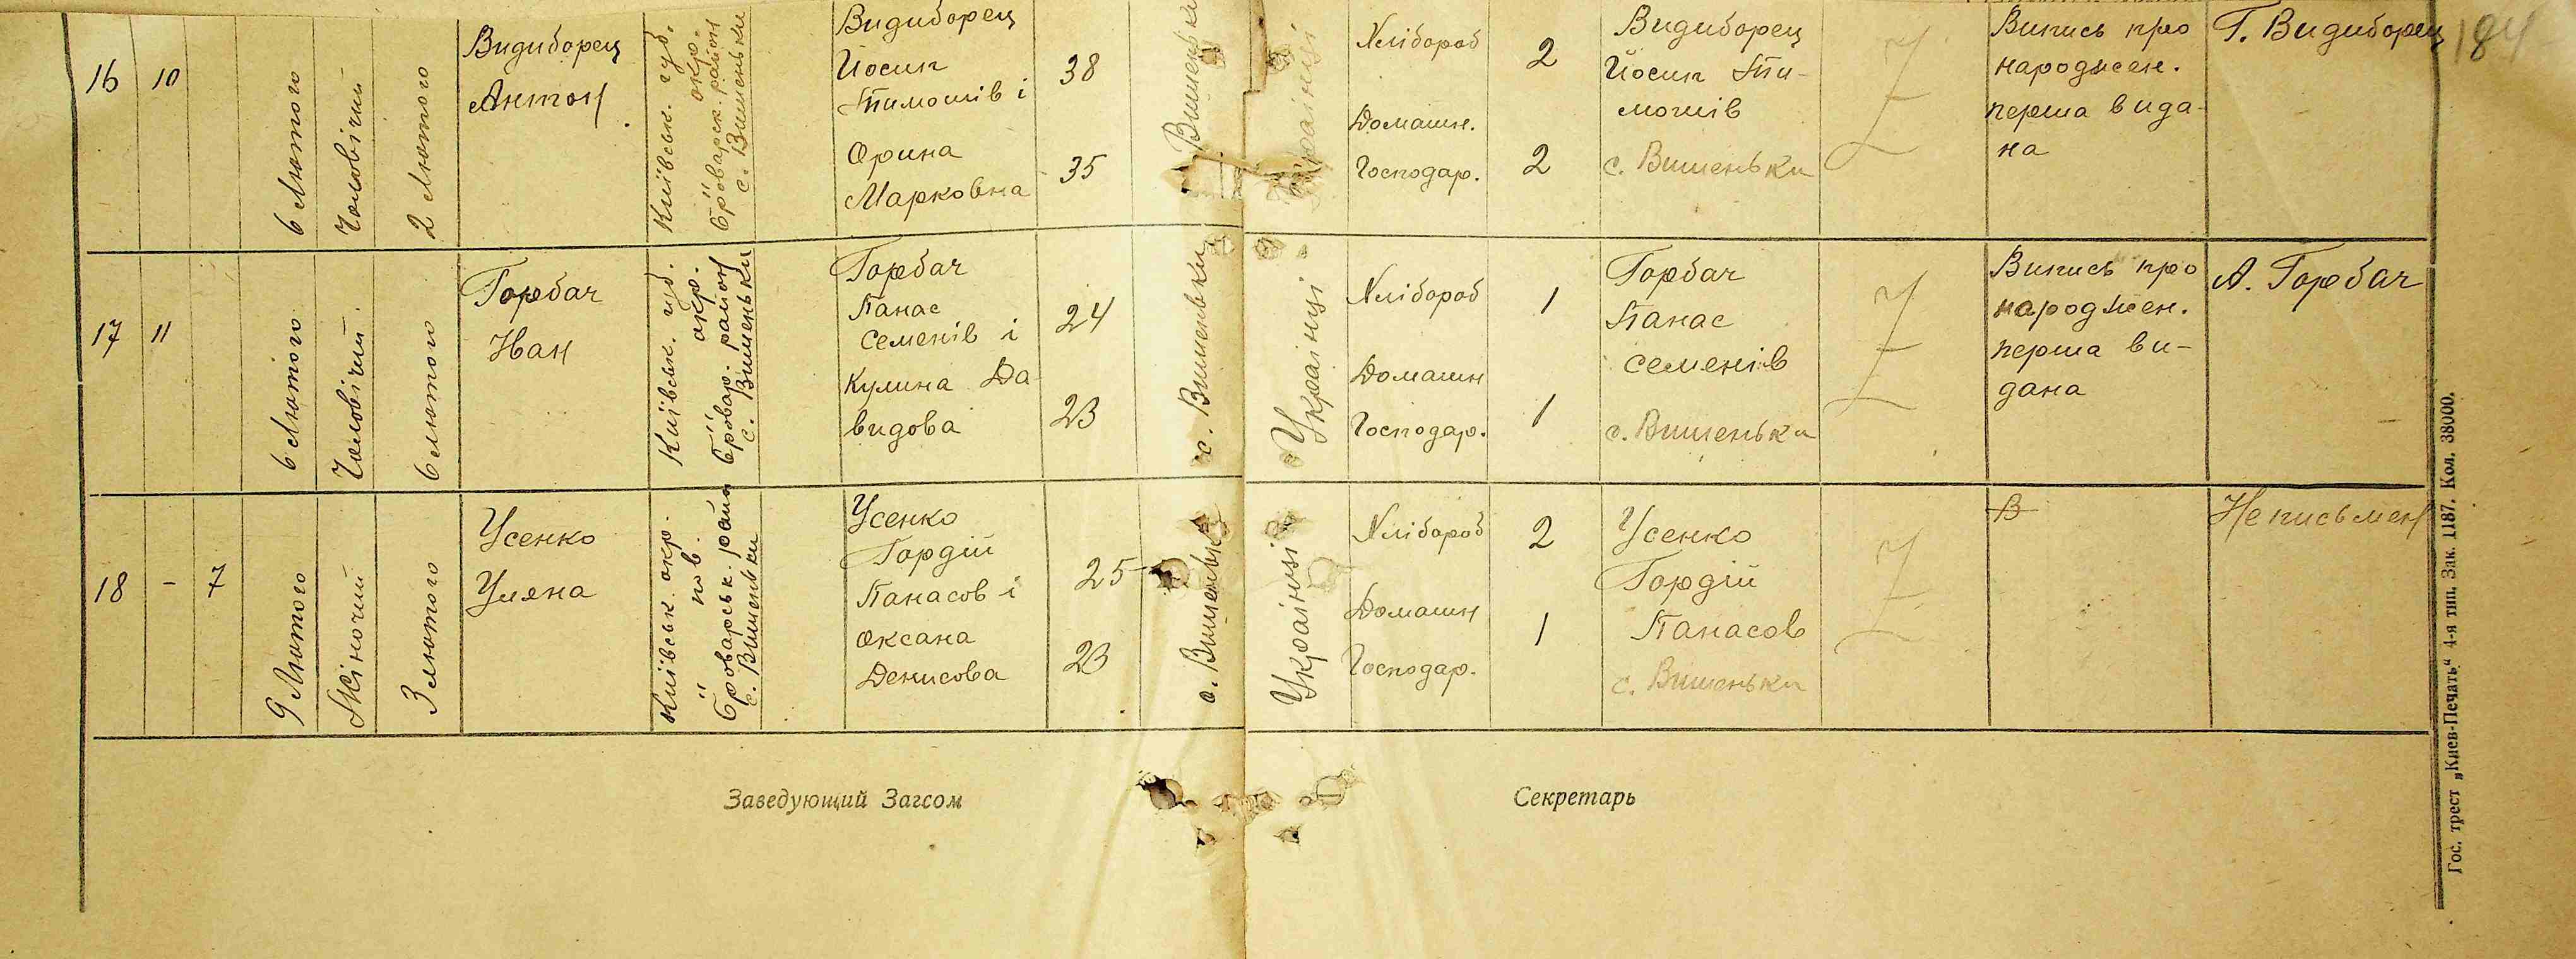 184
16
10
6 Лютого
Чоловічий
2 Лютого
Видиборец
Антон
Київськ. губ.
окр.
Броварск. район
с. Вишеньки
Видиборец
Йосип
Тимошів і
Орина
Марковна
38
35
Вишеньки
Українці
Хлібороб
Домашн.
Господар.
2
2
Видиборец
Йосип Ти-
мошів
с. Вишеньки
Випись про
народжен.
перша вида-
на
Г. Видиборец
17
11
6 Лютого
Чоловічий.
6 лютого
Горбач
Іван
Київськ. губ.
окр.
Бровар. район
с. Вишеньки
Горбач
Панас
Семенів і
Кулина Да-
видова
24
23
с. Вишеньки
Українці
Хлібороб
Домашн
Господар.
1
1
Горбач
Панас
Семенів
с. Вишеньки
Випись про
народжен.
перша ви-
дана
А. Горбач
18
-
7
9 Лютого
Жіночий
3 лютого
Усенко
Уляна
Київськ. окр.
пов.
Броварськ. район
с. Вишеньки
Усенко
Гордій
Панасов і
Оксана
Денисова
25
23
с. Вишеньки
Українці
Хлібороб
Домашн
Господар.
2
1
Усенко
Гордій
Панасов
с. Вишеньки
В
Неписьмен
Заведующий Загсом
Секретарь
Гос. трест „Киев-Печать“ 4-я тип. Зак. 1187. Кол. 38000.